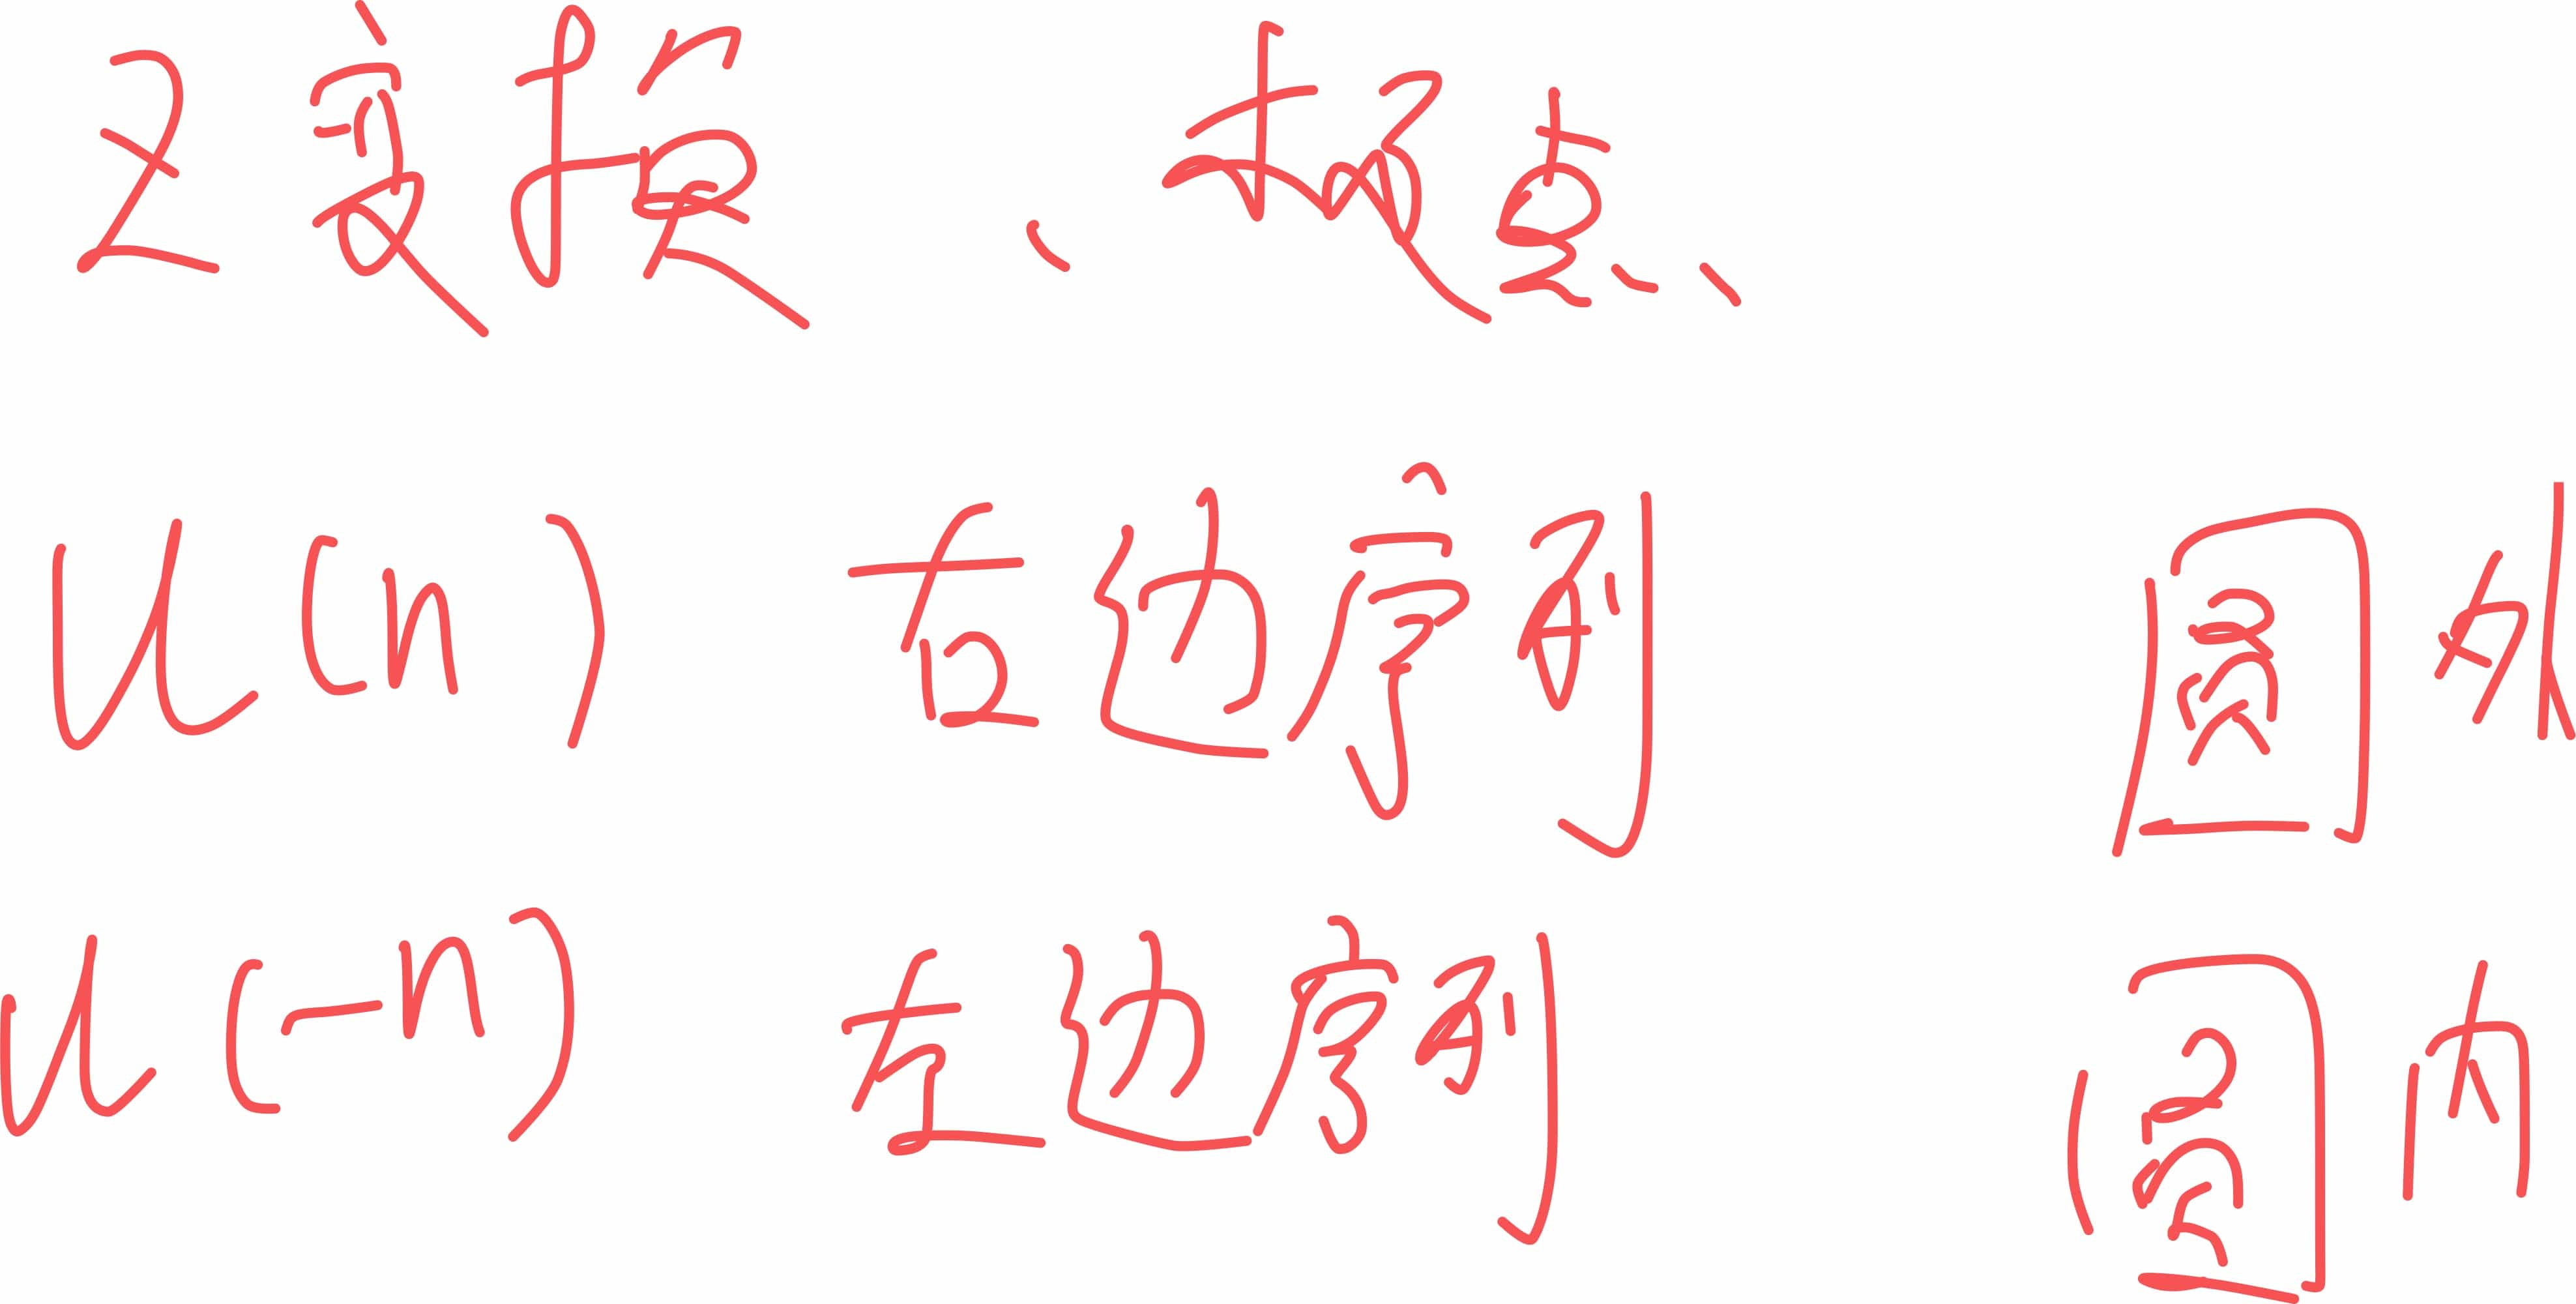 Z变换、极点、
u(n) 右边序列 圆外
u(-n) 左边序列 圆内